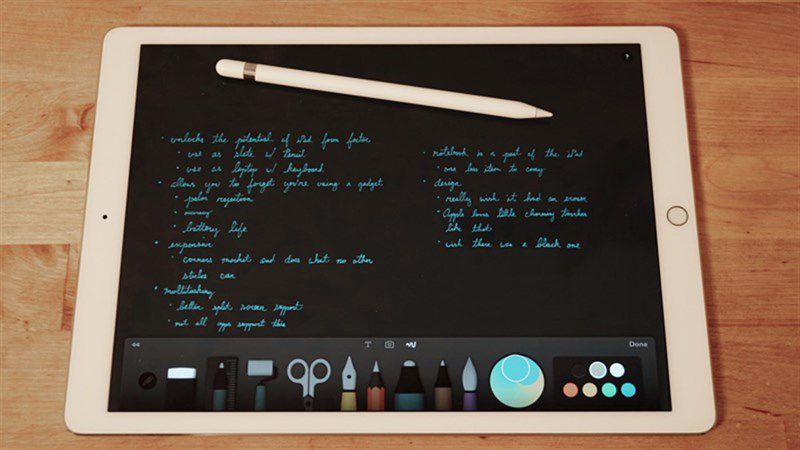 ?
• unlocks the potential of iPad form factor
• use as slate w/ Pencil
• use as laptop w/ keyboard
• allows you to forget you're using a gadget
• palm rejection
• accuracy
• battery life
• expensive
• corners market and does what no other
styles can
• multitasking
• better split screen support
• not all apps support this
• notebook is a part of the iPad
• one less item to carry
• design
• really wish it had an eraser
• Apple loves little charming touches
like that
• wish there was a black one
T
Done